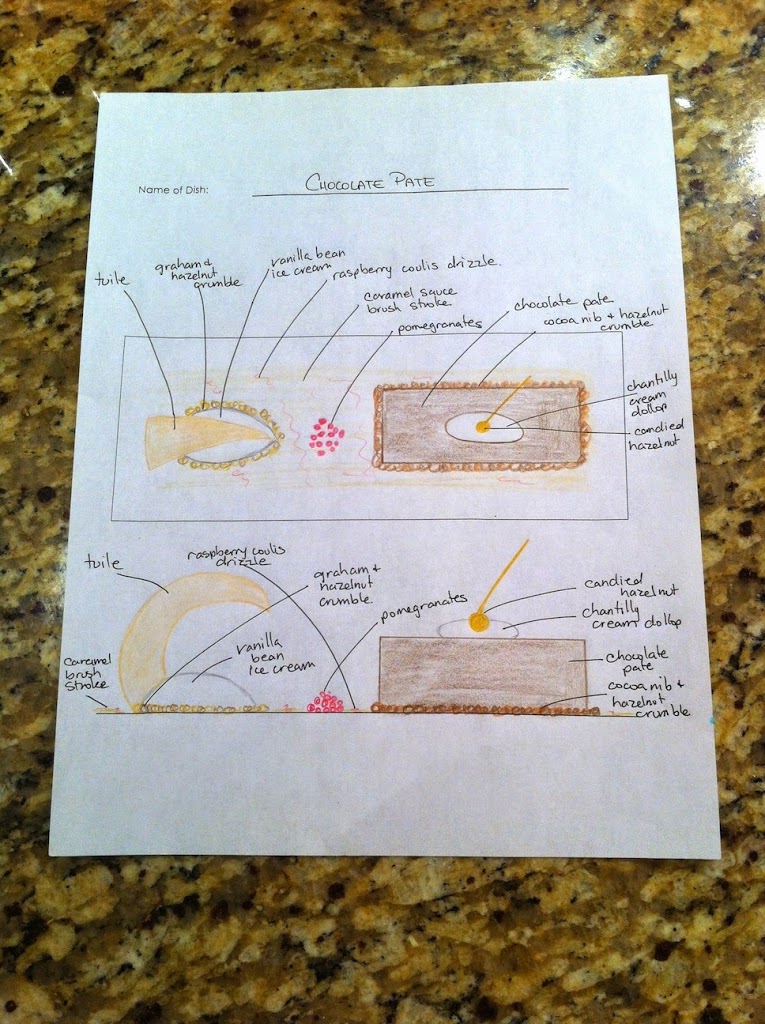 Name of Dish: CHOCOLATE PATE
tuile
graham &
hazelnut
crumble
vanilla bean
ice cream
raspberry coulis drizzle
caramel sauce
brush stroke
pomegranates
chocolate pate
cocoa nib & hazelnut
crumble
chantilly
cream
dollop
candied
hazelnut
tuile
raspberry coulis
drizzle
graham &
hazelnut
crumble
pomegranates
candied
hazelnut
chantilly
cream dollop
caramel
brush
stroke
vanilla
bean
ice cream
chocolate
pate
cocoa nib &
hazelnut
crumble